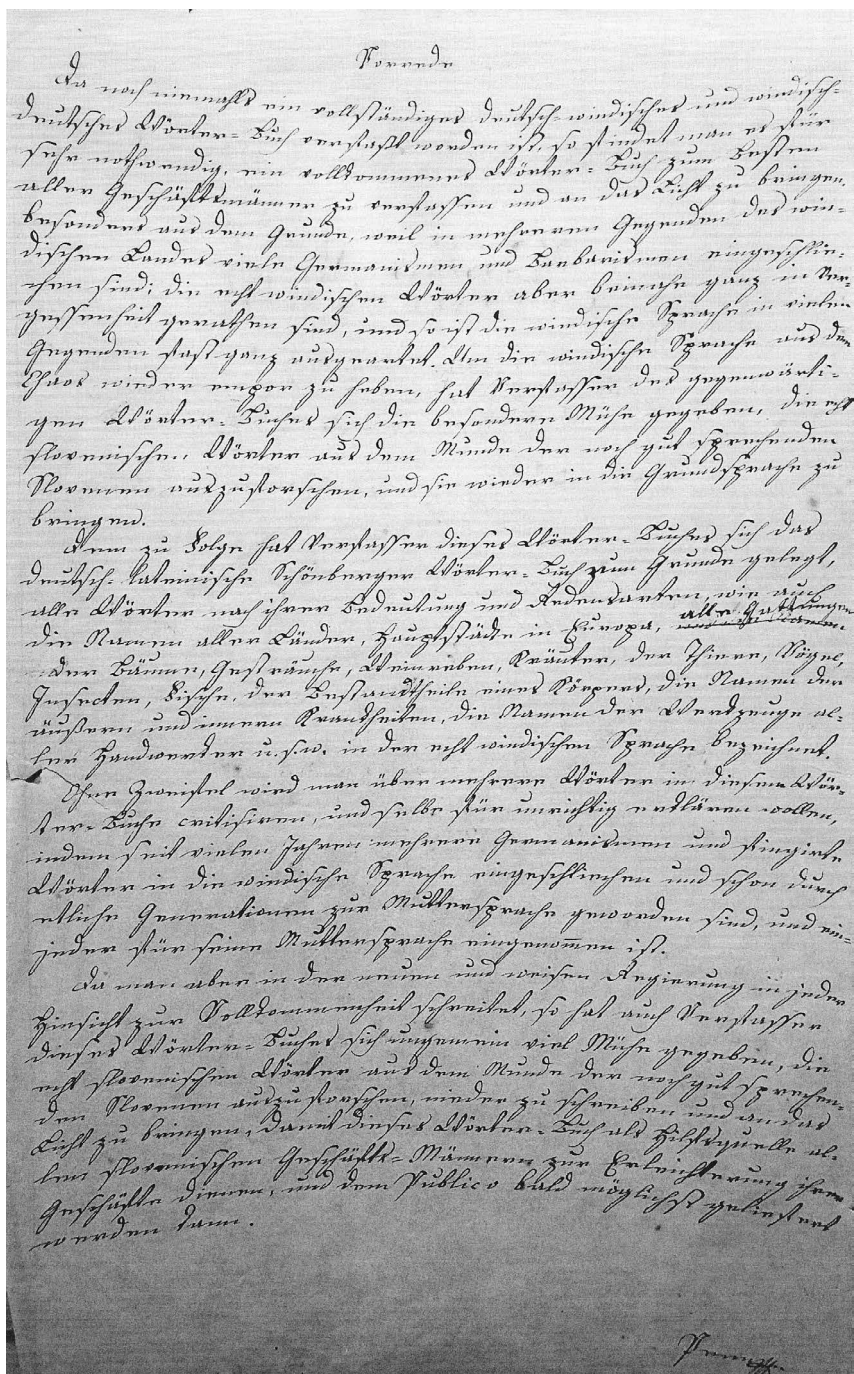 Vorrede
Da noch niemahls ein vollständiges deutsch-windisches und windisch-
deutsches Wörter-Buch verfaßt worden ist, so findet man es für
sehr nothwendig, ein vollkommenes Wörter-Buch zum Besten
aller Geschäftsmänner zu verfassen und an das Licht zu bringen,
besonders aus dem Grunde, weil in mehreren Gegenden des win-
dischen Landes viele Germanismen und Barbarismen eingeschlie-
chen sind; die echt windischen Wörter aber beinahe ganz in Ver-
gessenheit gerathen sind, und so ist die windische Sprache in vielen
Gegenden fast ganz ausgeartet. Um die windische Sprache aus dem
Chaos wieder empor zu heben, hat Verfasser des gegenwärti-
gen Wörter-Buches sich die besondere Mühe gegeben, die echt
slovenischen Wörter aus dem Munde der noch gut sprechenden
Slovenen auszuforschen, und sie wieder in die Grundsprache zu
bringen.
Dem zu Folge hat Verfasser dieses Wörter-Buches sich das
deutsch-lateinische Schönberger Wörter-Buch zum Grunde gelegt,
alle Wörter nach ihrer Bedeutung und Redensarten, wie auch
die Namen aller Länder, Hauptstädte in Europa, alle Gattungen
der Bäume, Gesträuche, Weinreben, Kräuter, der Thiere, Vögel,
Insecten, Fische, der Bestandtheile eines Körpers, die Namen der
äußern und innern Krankheiten, die Namen der Werkzeuge al-
ler Handwerker u.s.w. in der echt windischen Sprache bezeichnet.
Ohne Zweifel wird man über mehrere Wörter in diesem Wör-
ter-Buche critisiren, und selbe für unrichtig erklären wollen,
indem seit vielen Jahren mehrere Germanismen und fingirte
Wörter in die windische Sprache eingeschliechen und schon durch
etliche Generationen zur Muttersprache geworden sind, und ein-
jeder für seine Muttersprache eingenommen ist.
Da man aber in der neuen und weisen Regierung in jeder
Hinsicht zur Vollkommenheit schreitet, so hat auch Verfasser
dieses Wörter-Buches sich ungemein viel Mühe gegeben, die
echt slovenischen Wörter aus dem Munde der noch gut sprechen-
den Slovenen auszuforschen, nieder zu schreiben und an das
Licht zu bringen, damit dieses Wörter-Buch als Hilfsquelle al-
len slovenischen Geschäfts-Männern zur Erleichterung ihrer
Geschäfte dienen, und dem Publico bald möglichst geliefert
werden kann.